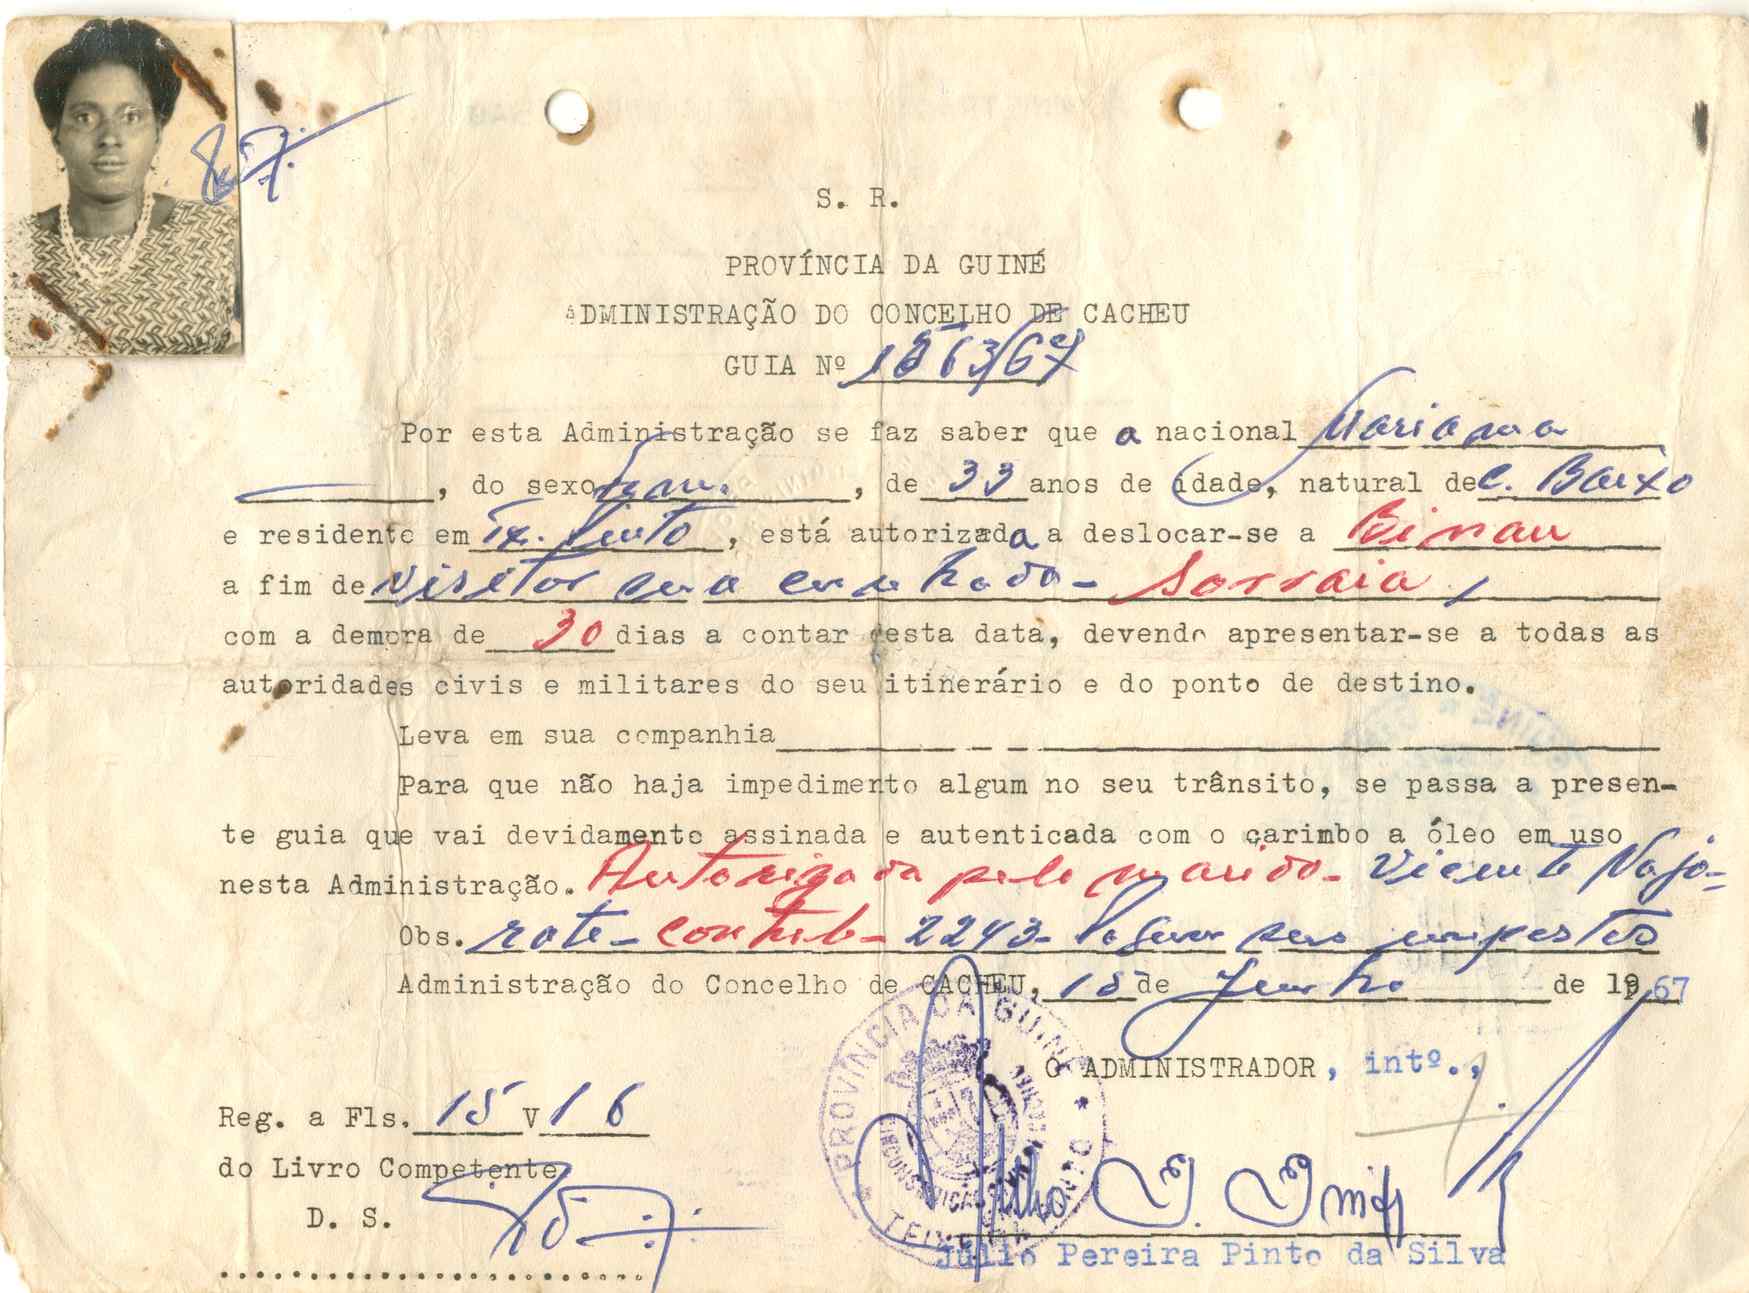 S. R.
PROVÍNCIA DA GUINÉ
ADMINISTRAÇÃO DO CONCELHO DE CACHEU
GUIA Nº 1563/67
Por esta Administração se faz saber que a nacional Mariama
, do sexo fem. , de 33 anos de idade, natural de C. Baixo
e residente em Tx. Pinto , está autorizada a deslocar-se a Binau
a fim de visitar sua cunhada - Sonraia,
com a demora de 30 dias a contar desta data, devendo apresentar-se a todas as
autoridades civis e militares do seu itinerário e do ponto de destino.
Leva em sua companhia
Para que não haja impedimento algum no seu trânsito, se passa a presen-
te guia que vai devidamente assinada e autenticada com o carimbo a óleo em uso
nesta Administração. Autorizada pelo marido - Vicente Najo-
Obs. rate - contrib - 2243 - Pagou seus impostos
Administração do Concelho de CACHEU, 15 de Junho de 1967
O ADMINISTRADOR, intº.,
Reg. a Fls. 15 V 16
do Livro Competente
D. S.
PROVÍNCIA DA GUINÉ
TEIXEIRA PINTO
Júlio Pereira Pinto da Silva